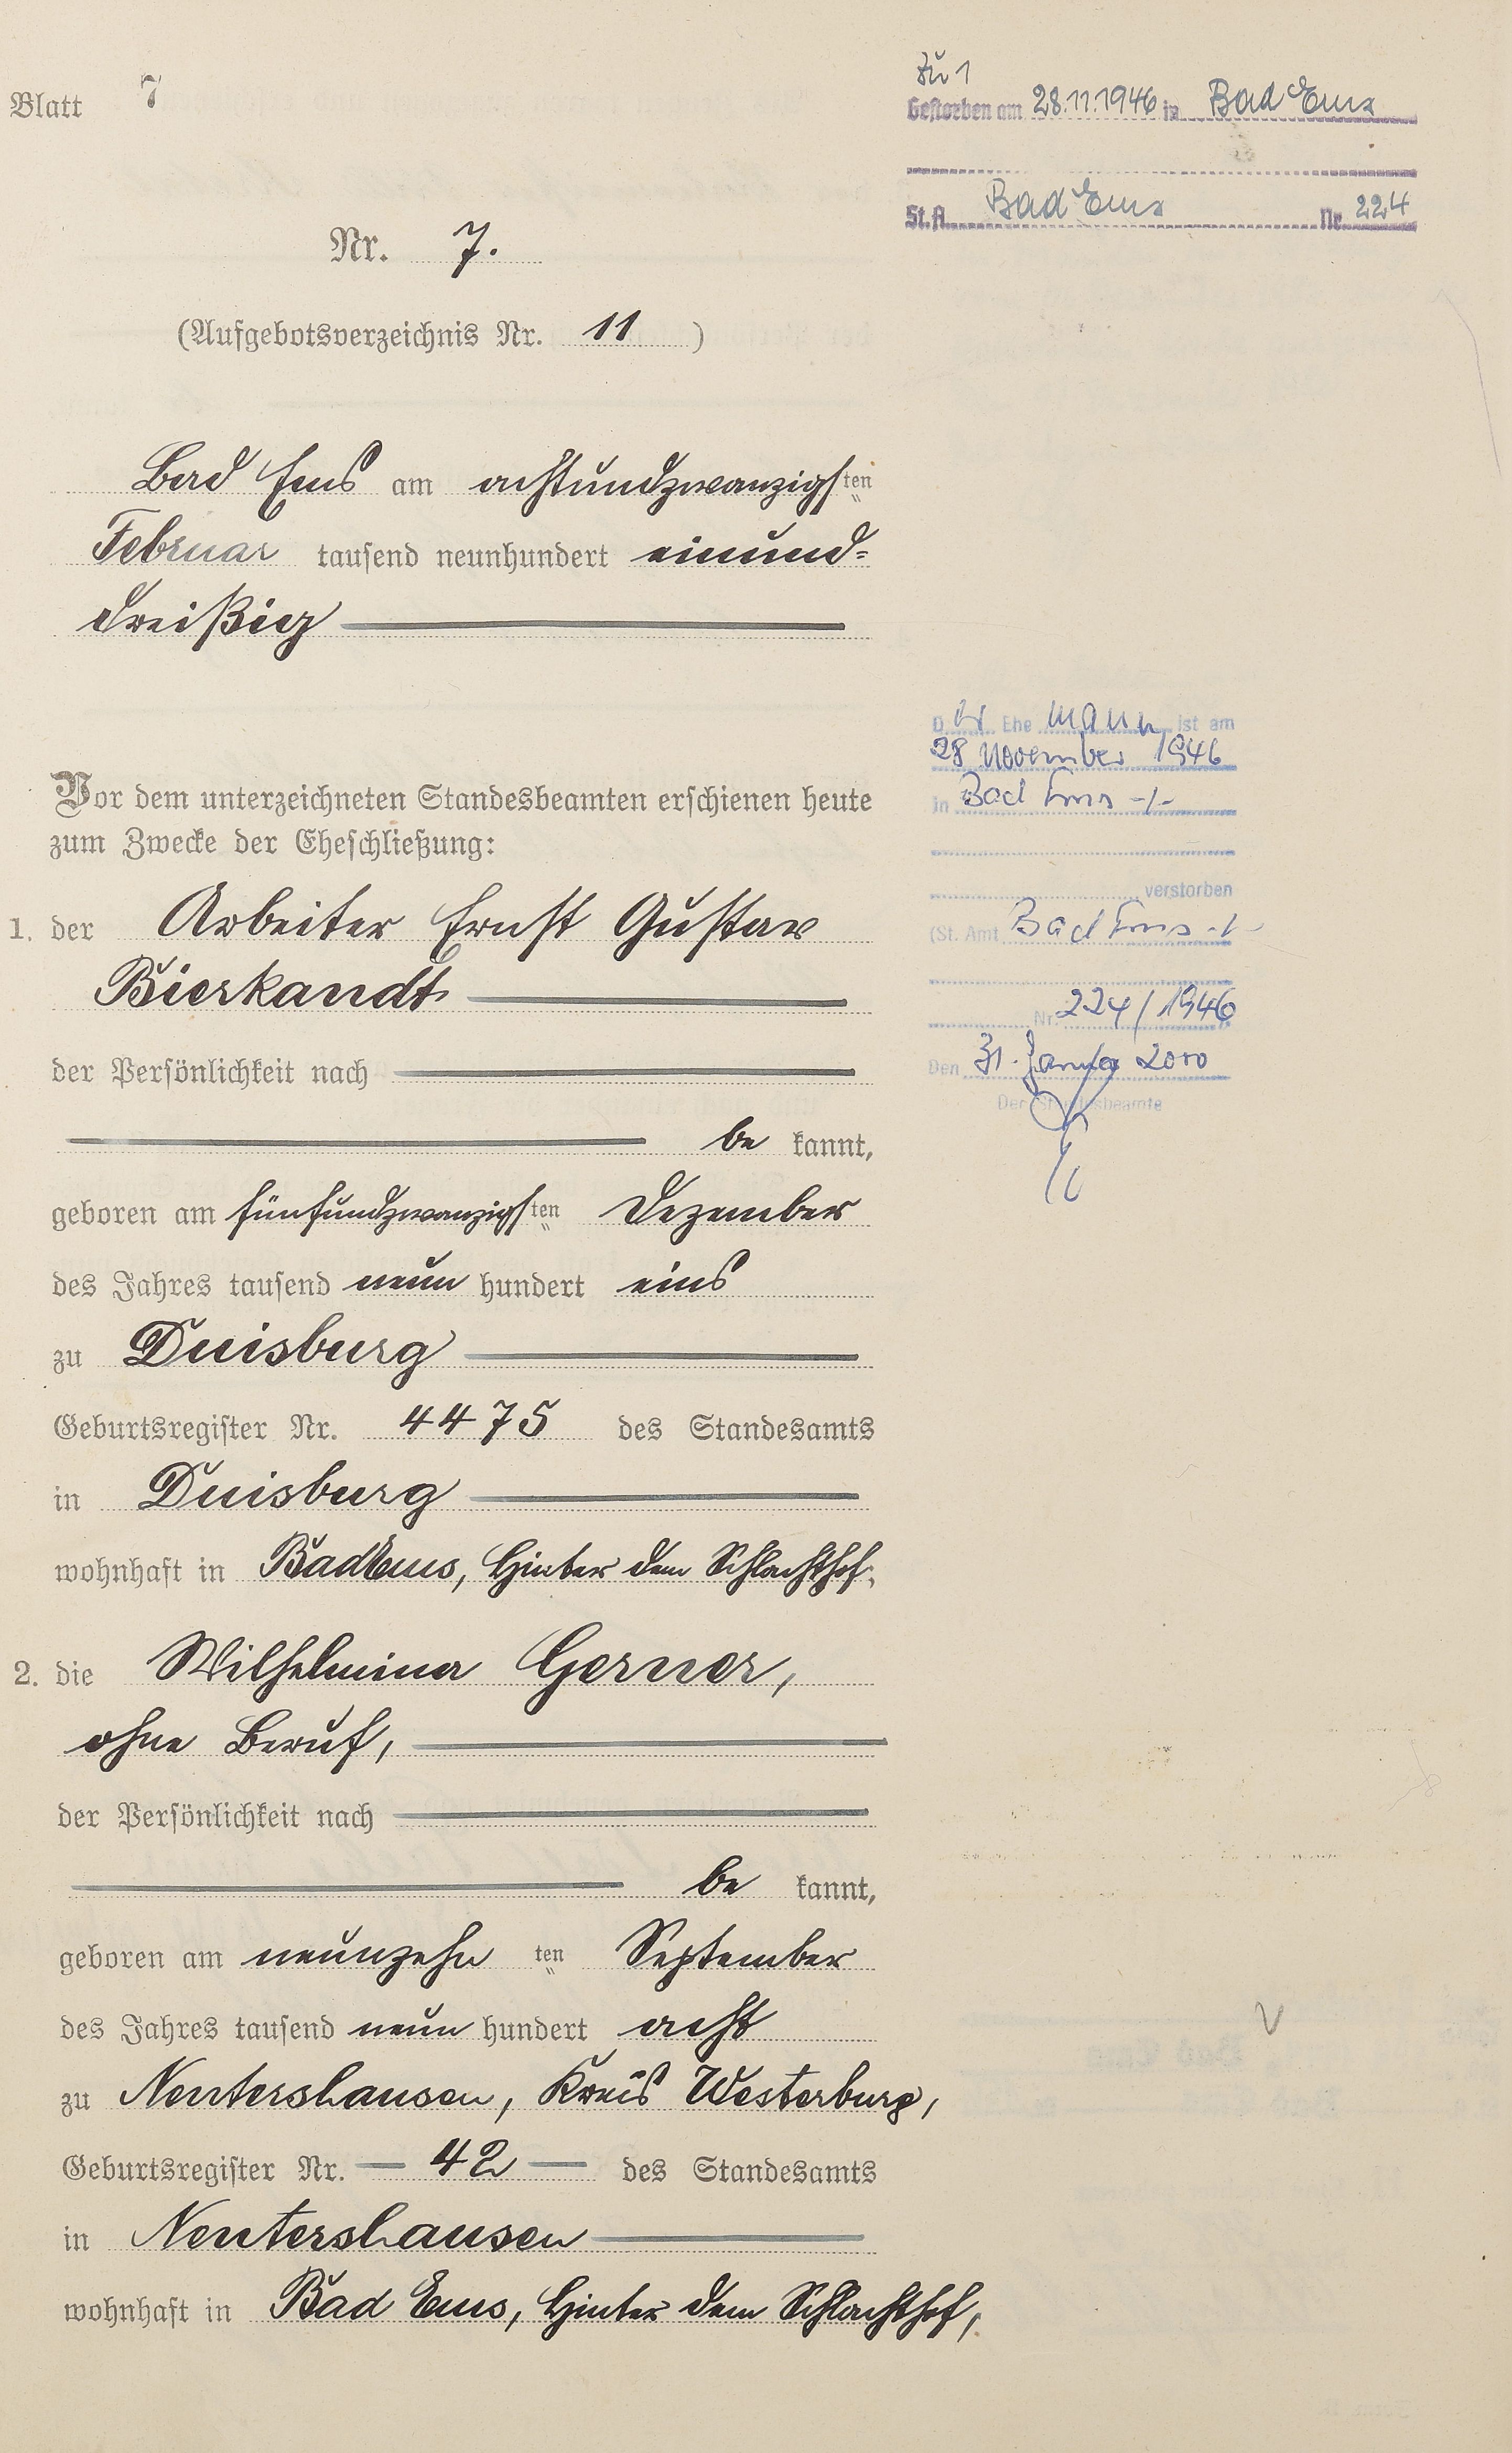 Blatt 7
Nr. 7.
(Aufgebotsverzeichnis Nr. 11 )
Bad Ems am achtundzwanzigsten
Februar tausend neunhundert einund-
dreißig
Vor dem unterzeichneten Standesbeamten erschienen heute
zum Zwecke der Eheschließung:
1. der Arbeiter Ernst Gustav
Bierkandt
der Persönlichkeit nach
be kannt,
geboren am fünfundzwanzigsten Dezember
des Jahres tausend neun hundert eins
zu Duisburg
Geburtsregister Nr. 4475 des Standesamts
in Duisburg
wohnhaft in Bad Ems, Hinter dem Schlachthof,
2. die Wilhelmina Gerner,
ohne Beruf,
der Persönlichkeit nach
be kannt,
geboren am neunzehn ten September
des Jahres tausend neun hundert acht
zu Nentershausen, Kreis Westerburg,
Geburtsregister Nr. 42 des Standesamts
in Nentershausen
wohnhaft in Bad Ems, Hinter dem Schlachthof,
Zu 1
Gestorben am 28.11.1946 in Bad Ems
St.A. Bad Ems Nr. 224
D er Ehe mann ist am
28 November 1946
in Bad Ems -/-
verstorben
(St. Amt Bad Ems -/-
Nr. 224/1946
Den 31. Januar 2000
Der Standesbeamte